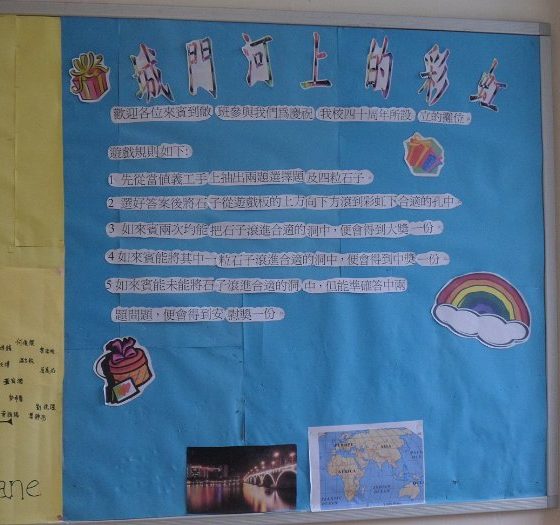 城門河上的彩虹
歡迎各位來賓到敝 班參與我們爲慶祝 我校四十周年所設 立的攤位。
遊戲規則如下:
1 先從當值義工手上抽出兩題選擇題及四粒石子。
2 選好答案後將石子從遊戲板的上方向下方滾到彩虹下合適的孔中。
3 如來賓兩次均能把石子滾進合適的洞中,便會得到大獎一份。
4 如來賓能將其中一粒石子滾進合適的洞中,便會得到中獎一份。
5 如來賓能未能將石子滾進合適的洞中,但能準確答中兩
題問題,便會得到安慰獎一份。
EUROPE
ASIA
AFRICA
INDIAN OCEAN
ane